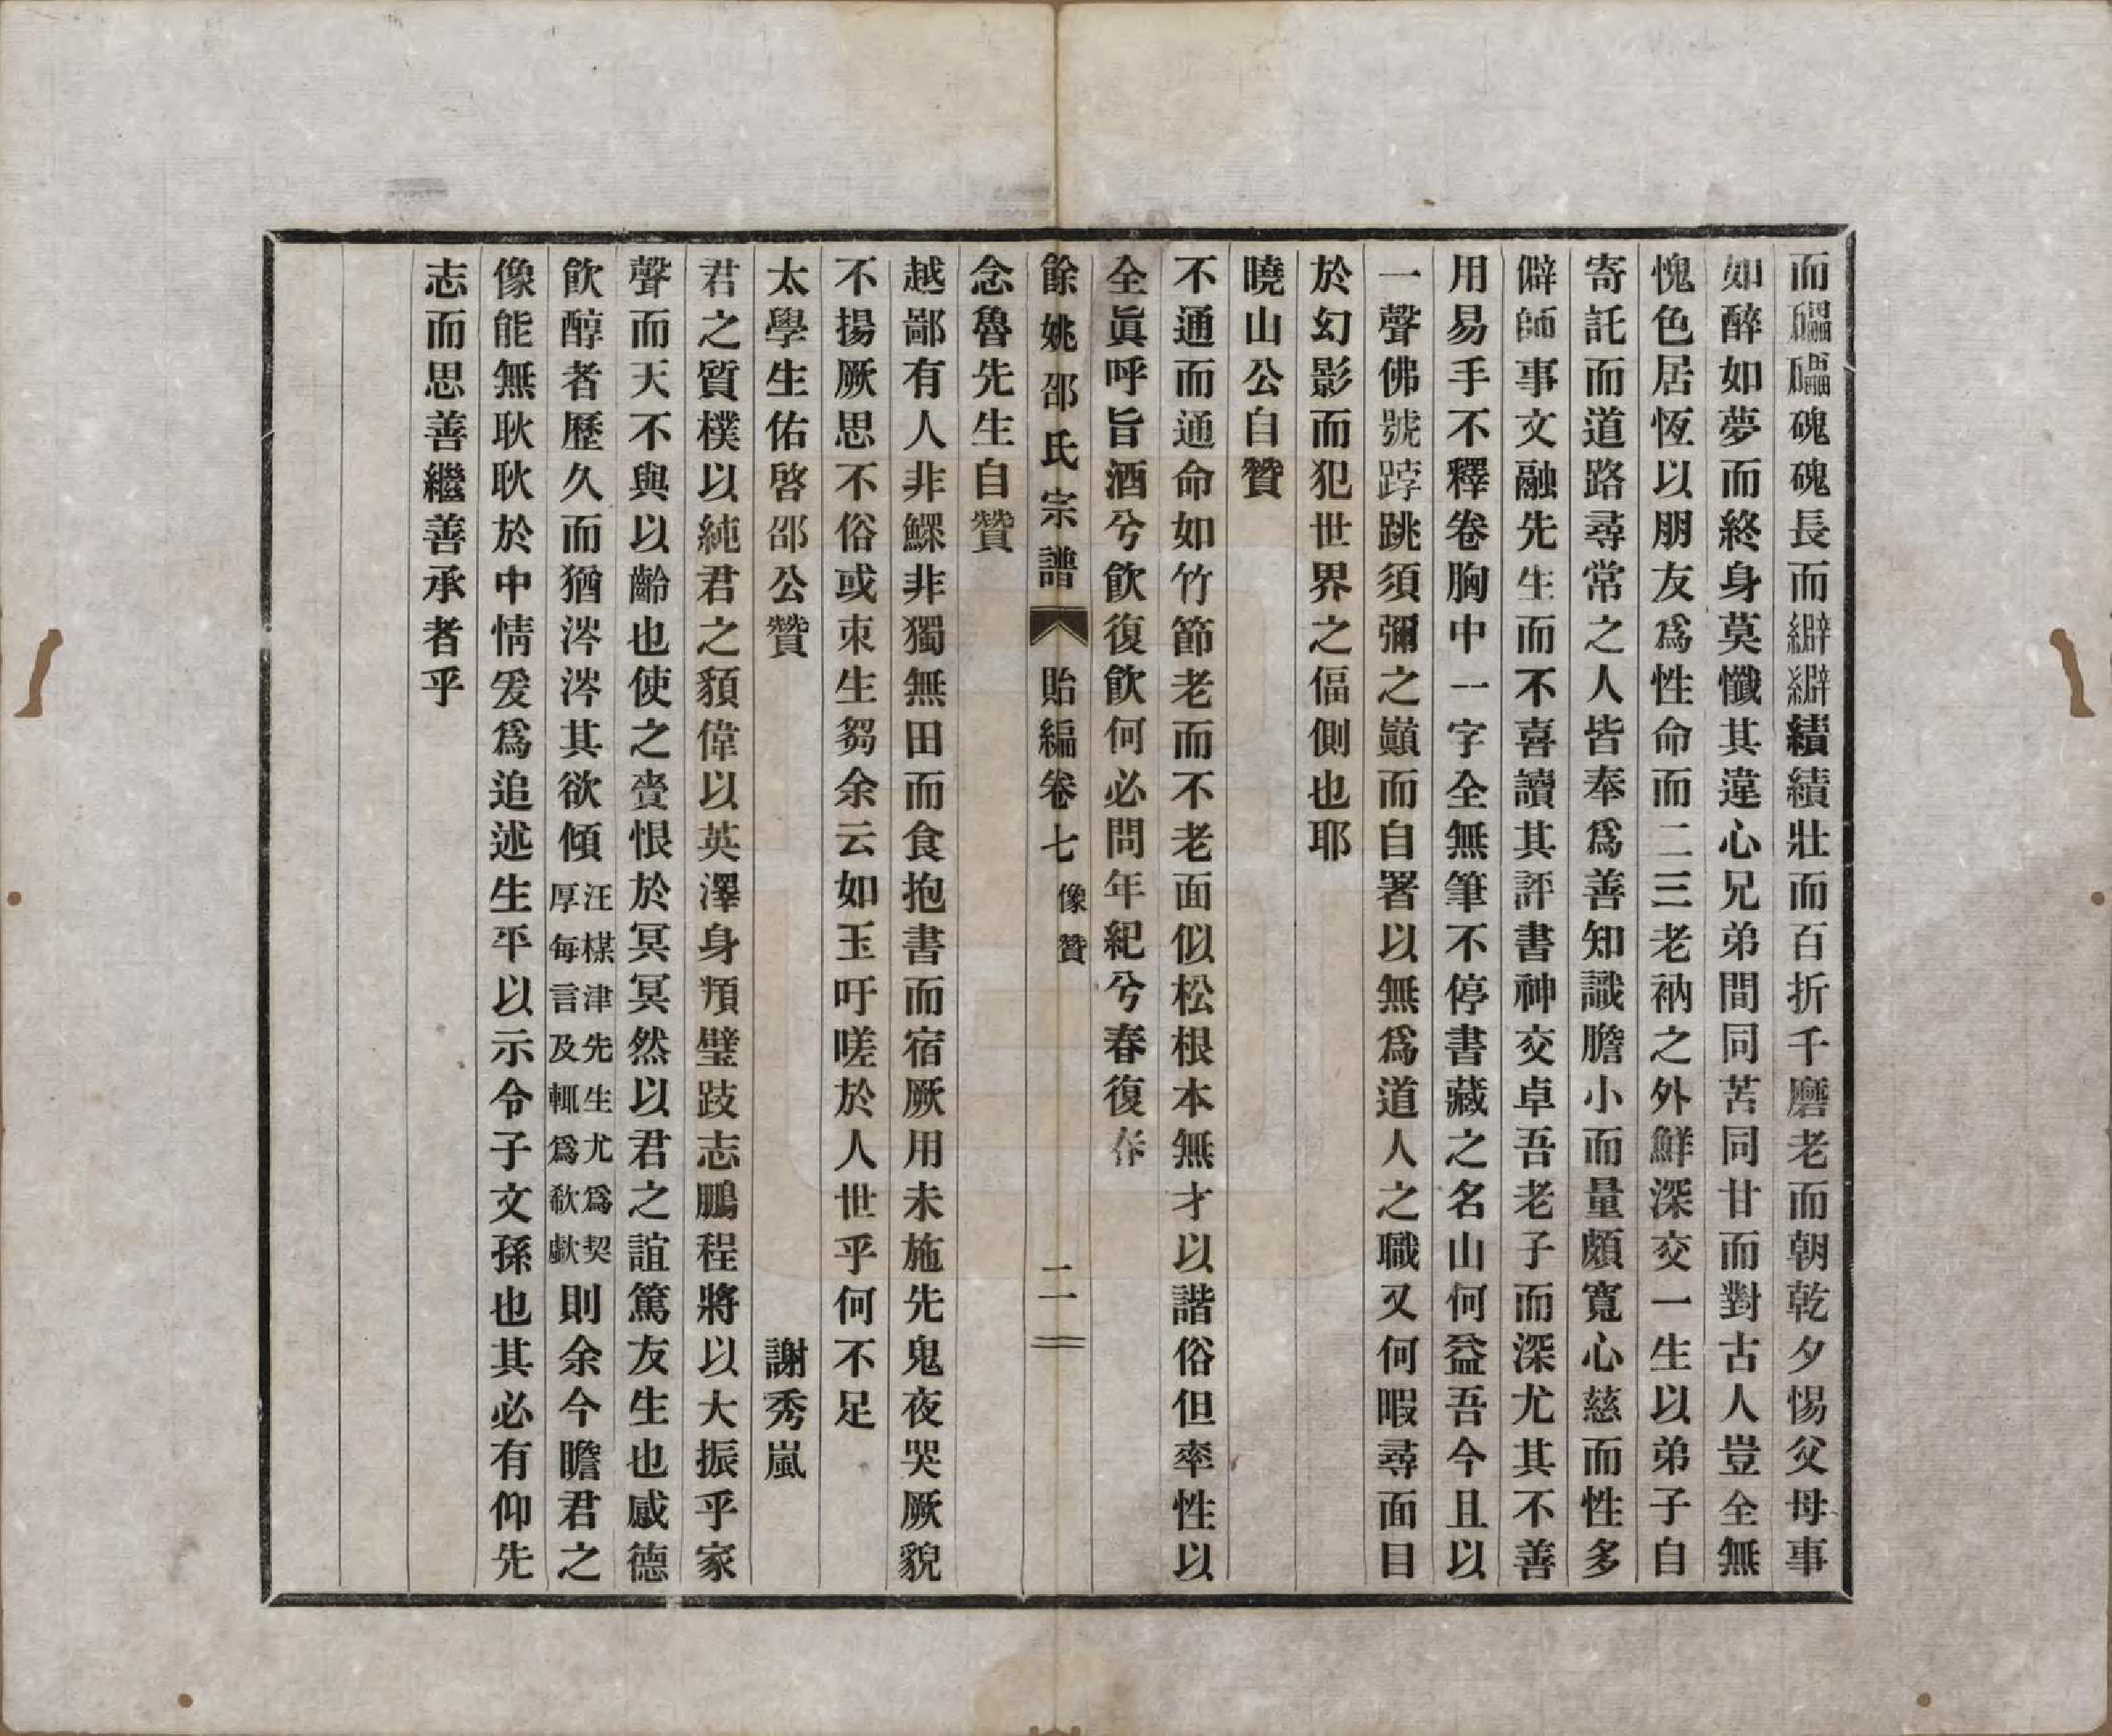 而礧礧磈磈長而繴繴續績壯而百折千磨老而朝乾夕惕父母事
如醉如夢而終身莫懺其違心兄弟間同苦同甘而對古人豈全無
愧色居恆以朋友爲性命而二三老衲之外鮮深交一生以弟子自
寄託而道路尋常之人皆奉爲善知識膽小而量頗寬心慈而性多
僻師事文融先生而不喜讀其評書神交卓吾老子而深尤其不善
用易手不釋卷胸中一字全無筆不停書藏之名山何益吾今且以
一聲佛號踔跳須彌之巔而自署以無爲道人之職又何暇尋面目
於幻影而犯世界之偪側也耶
曉山公自贊
不通而通命如竹節老而不老面似松根本無才以諧俗但率性以
全眞呼旨酒兮飮復飮何必問年紀兮春復春
餘姚邵氏宗譜 貽編卷七 像贊 二
念魯先生自贊
越鄙有人非鰥非獨無田而食抱書而宿厥用未施先鬼夜哭厥貌
不揚厥思不俗或朿生芻余云如玉吁嗟於人世乎何不足
太學生佑啓邵公贊 謝秀嵐
君之質樸以純君之頯偉以英澤身類璧跂志鵬程將以大振乎家
聲而天不與以齡也使之賫恨於冥冥然以君之誼篤友生也感德
飮醇者歷久而猶涔涔其欲傾汪楳津先生尤爲契厚每言及輒爲欷歔則余今瞻君之
像能無耿耿於中情爰爲追述生平以示令子文孫也其必有仰先
志而思善繼善承者乎